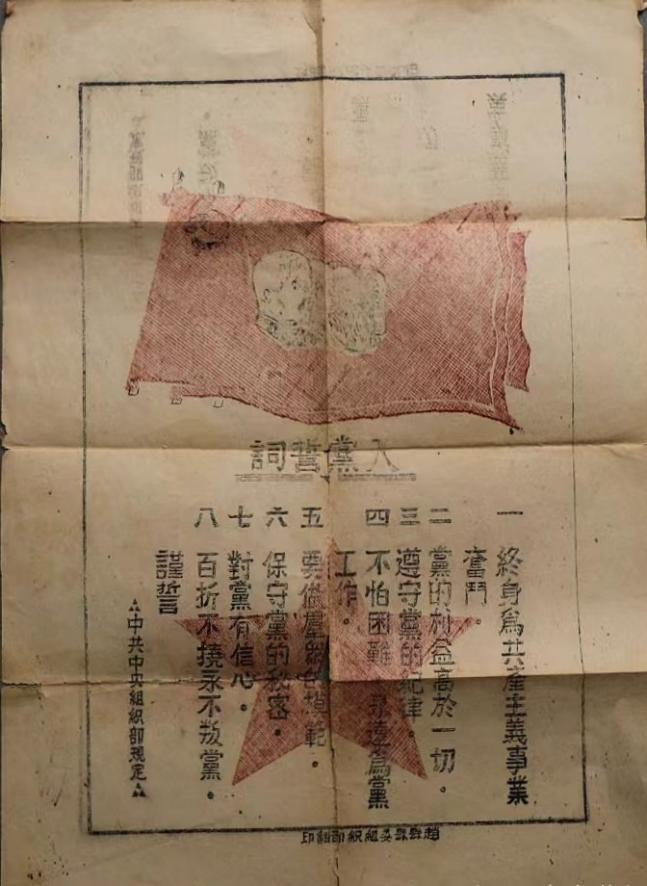 入黨誓詞
一 終身爲共產主義事業
奮鬥。
二 黨的利益高於一切。
三 遵守黨的紀律。
四 不怕困難 爲黨
工作。
五 要做羣衆的模範。
六 保守黨的秘密。
七 對黨有信心。
八 百折不撓永不叛黨。
謹誓
▲中共中央組織部規定▲
縣委組織部翻印